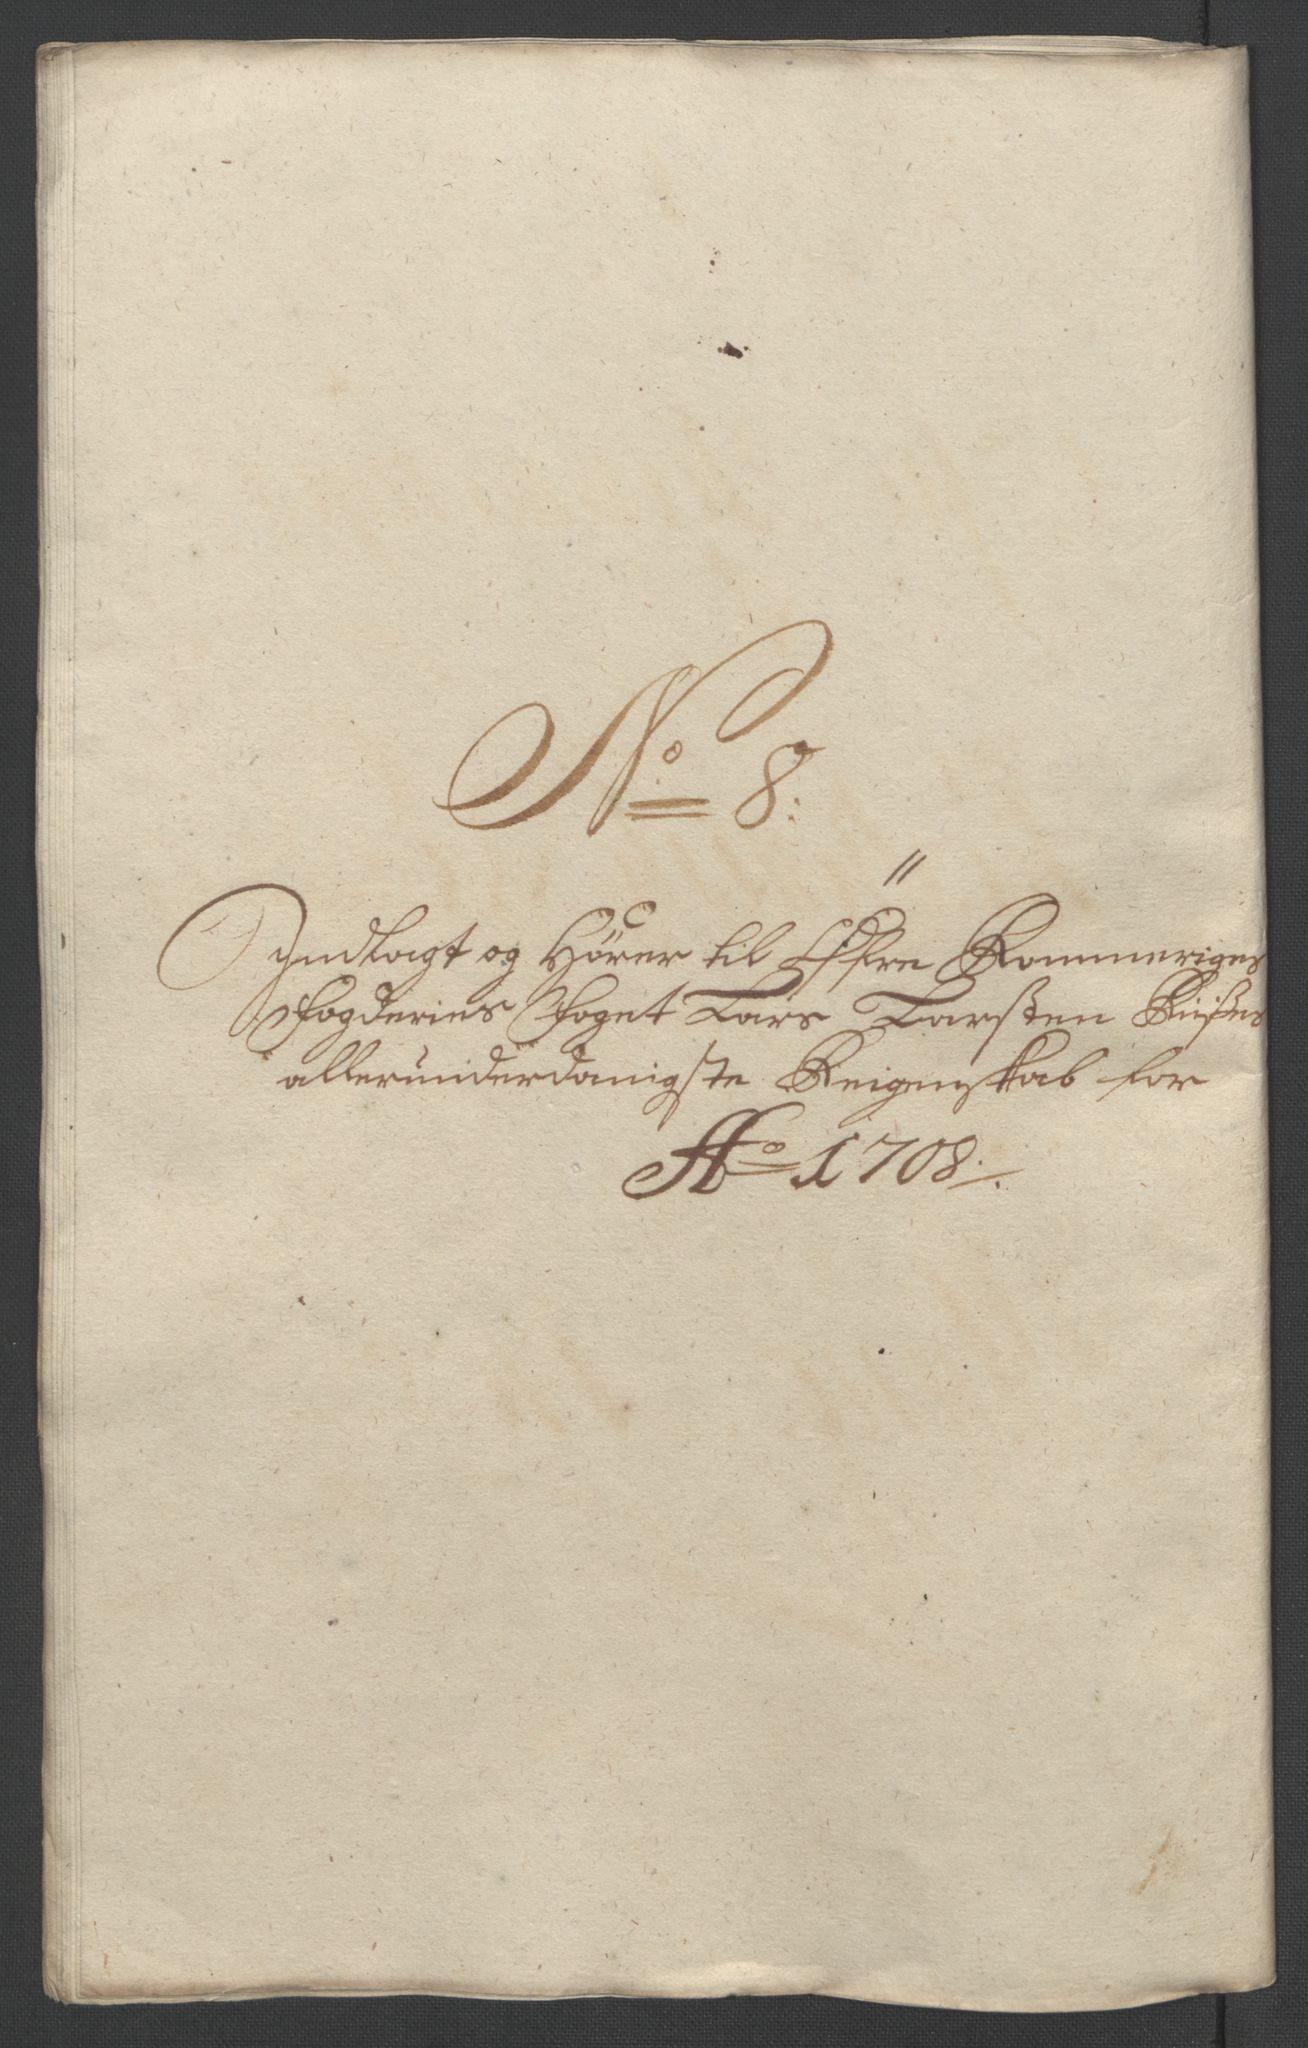 No 8:
Indlagt og Hører til Øfre Rommeriges
Fogderies Foget Lars Larsßen
allerunderdanigste Reigenskab for
Ao 1708.